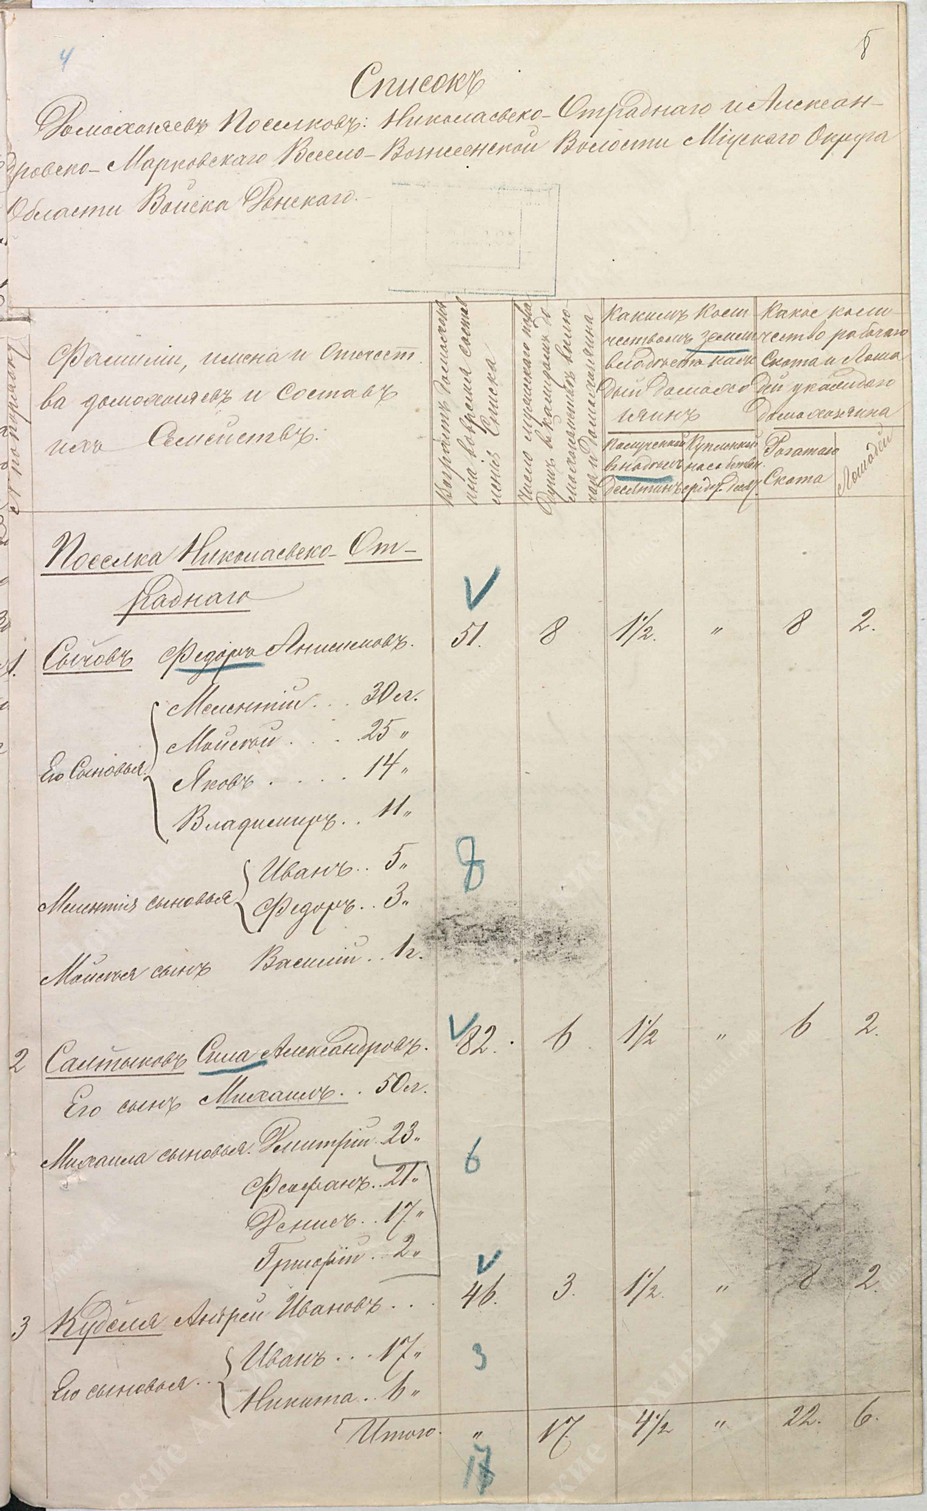 4
8
Списокъ
Домохозяевъ Поселковъ: Николаевско-Отраднаго и Алексан-
дровско-Марковскаго Весело-Вознесенской Волости Міускаго Округа
Области Войска Донскаго.
№ по порядку
Фамиліи, имена и Отчест
ва домохозяевъ и составъ
ихъ Семействъ:
Возрастъ домохозя
ина вовремя состав
ленія Списка
Число мужскаго пола
Душъ въ каждомъ до
Какимъ коли
чествомъ земли
владѣетъ каж
дый домохо
зяинъ
Полученной
въ надѣлъ
десятинъ
Купленной
Какое коли
чество рабочаго
Скота и Лоша
дей у каждаго
домохозяина
Рогатаго
Скота
Лошадей
Поселка Николаевско-От-
раднаго
1. Сычовъ Федоръ Анисимовъ. 51. 8 1½. " 8 2.
Его Сыновья: Мелентій . . . 30 л.
Мойсей . . . . 25 "
Яковъ . . . . . 14 "
Владимиръ . . 11 "
Мелентія сыновья Иванъ . . 5 "
8
Федоръ . . 3 "
Мойсея сынъ Василій . . 1 г.
2 Салтыковъ Сила Александровъ. 82. 6 1½ " 6 2.
Его сынъ Михаилъ . . 50 л.
Михаила сыновья: Дмитрій 23 "
6
Феофанъ . . 21 "
Денисъ . . 17 "
Григорій . 2 "
3 Кубеля Андрей Ивановъ . . . 46. 3. 1½ " 8 2.
Его сыновья . . Иванъ . . . 17 "
3
Никита . . 6 "
Итого. " 17 4½ " 22. 6.
17